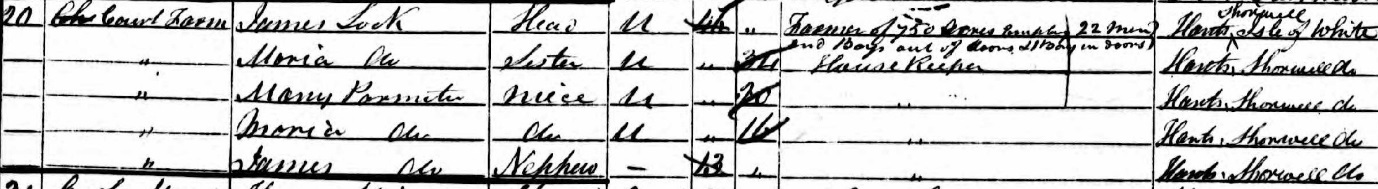 20 Court Farm James Lock Head U 46 " Farmer of 750 Acres employ 22 Men Hants, Shorwell Isle of White
and Boys out of doors 1 Boy in doors
" Maria do Sister U " House Keeper Hants, Shorwell do
" Mary Parmiter Niece U " 20 " Hants, Shorwell do
" Maria do do U " 16 " Hants, Shorwell do
" James do Nephew – 13 " Hants, Shorwell do